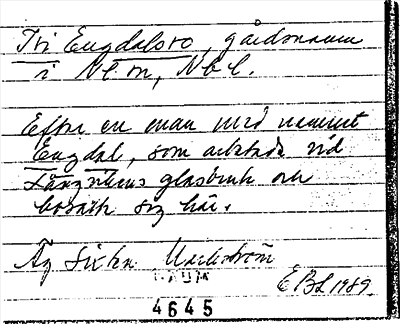 Tri Engdalsro, gårdsnamn
i Nt sn, Nbl.
Efter en man med namnet
Engdal, som arbetade vid
Långvikens glasbruk och
bosatte sig här.
Äg Sixten Markström
DAUM
EBL 1989.
4645